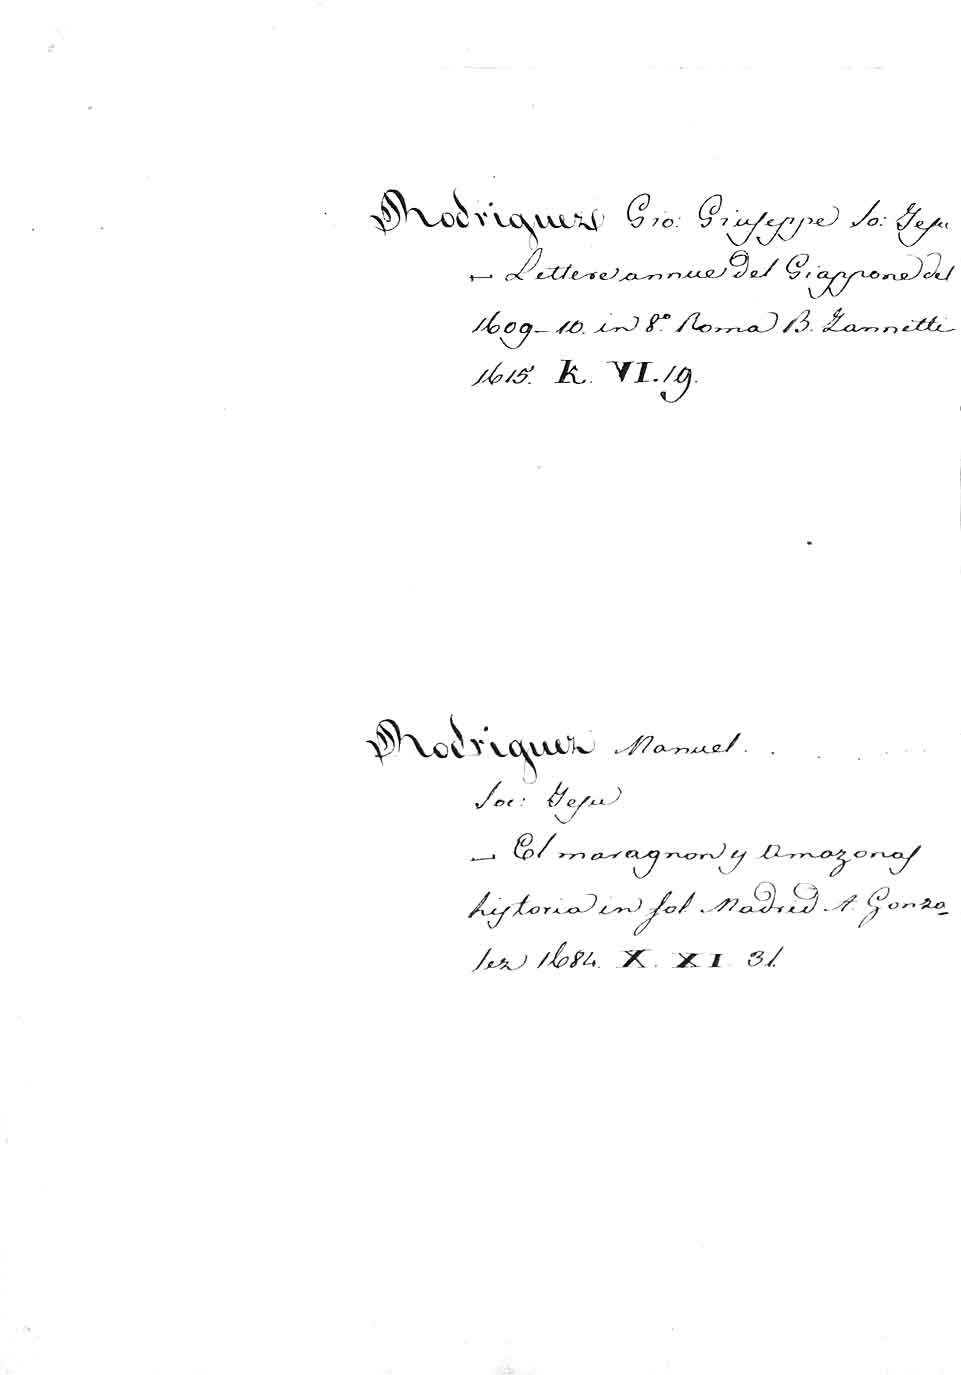 Rodriguez Gio: Giuseppe So: Jesu
— Lettere annue del Giappone del
1609-10. in 8.° Roma B. Zannetti
1615. K. VI. 19.
Rodriguez Manuel.
Soc: Jesu
— El maragnon y Amazonas
historia in fol. Madrid A. Gonza-
lez 1684. X. XI 31.